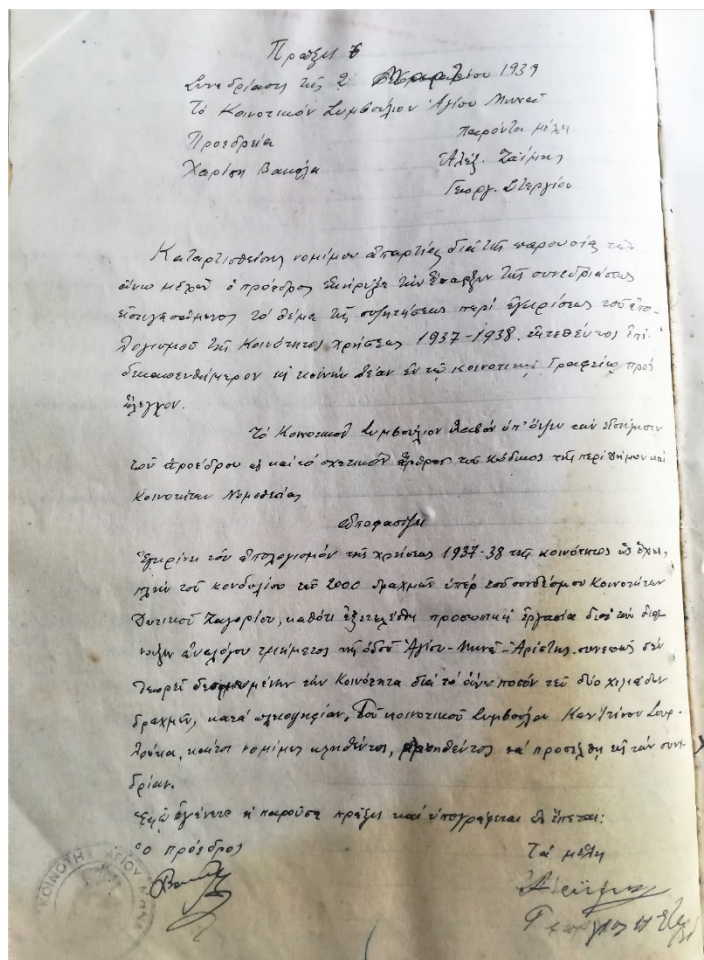 Πράξις 6
Συνεδρίασις τῆς 2 1939
Τὸ Κοινοτικὸν Συμβούλιον Ἁγίου Μηνᾶ
Προεδρεία Παρόντα μέλη
Χαρίση Βακόλα Ἀλέξ. Ζαΐμης
Γεώργ. Στεργίου
Καταρτισθείσης νομίμου ἀπαρτίας διὰ τῆς παρουσίας τῶν
ἄνω μελῶν ὁ πρόεδρος ἐκήρυξε τὴν ἔναρξιν τῆς συνεδριάσεως
εἰσηγησάμενος τὸ θέμα τῆς συζητήσεως περὶ ἐγκρίσεως τοῦ ἀπο-
λογισμοῦ τῆς Κοινότητος χρήσεως 1937-1938 ἐκτεθέντος ἐπὶ
δεκαπενθήμερον εἰς κοινὴν θέαν ἐν τῷ κοινοτικῷ Γραφείῳ πρὸς
ἔλεγχον.
Τὸ Κοινοτικὸν Συμβούλιον λαβὸν ὑπ' ὄψιν τὴν εἰσήγησιν
τοῦ προέδρου ὡς καὶ τὸ σχετικὸν ἄρθρον τοῦ κώδικος τῆς περὶ δήμων καὶ
Κοινοτήτων Νομοθεσίας
Ἀποφασίζει
Ἐγκρίνει τὸν ἀπολογισμὸν τῆς χρήσεως 1937-38 τῆς κοινότητος ὡς ἔχει,
πλὴν τοῦ κονδυλίου τῶν 2000 δραχμῶν ὑπὲρ τοῦ συνδέσμου Κοινοτήτων
Δυτικοῦ Ζαγορίου, καθότι ἐξετελέσθη προσωπικὴ ἐργασία διὰ τὴν διά-
νοιξιν ἀναλόγου τμήματος τῆς ὁδοῦ Ἁγίου-Μηνᾶ-Ἀρίστης. συνεπῶς δὲν
θεωρεῖ δεσμευμένην τὴν Κοινότητα διὰ τὸ ἄνω ποσὸν τῶν δύο χιλιάδων
δραχμῶν, κατὰ πλειοψηφίαν, τοῦ κοινοτικοῦ Συμβούλου Κων/τίνου
καίτοι νομίμως κληθέντος, ἀρνηθέντος νὰ προσέλθῃ εἰς τὴν συνε-
δρίαν.
Ἐφ' ᾧ ἐγένετο ἡ παροῦσα πρᾶξις καὶ ὑπογράφεται ὡς ἕπεται:
ὁ πρόεδρος Τὰ μέλη
Γεώργιος
ΚΟΙΝΟΤΗ ΑΓΙΟΥ ΜΗΝΑ